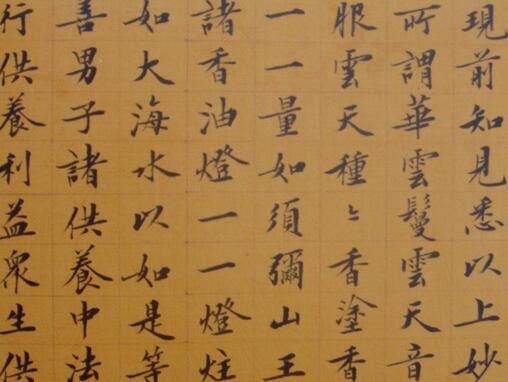 現前知見悉以上妙
所謂華雲鬘雲天音
服雲天種〻香塗香
一一量如須彌山王
諸香油燈一一燈炷
如大海水以如是等
善男子諸供養中法
行供養利益衆生供